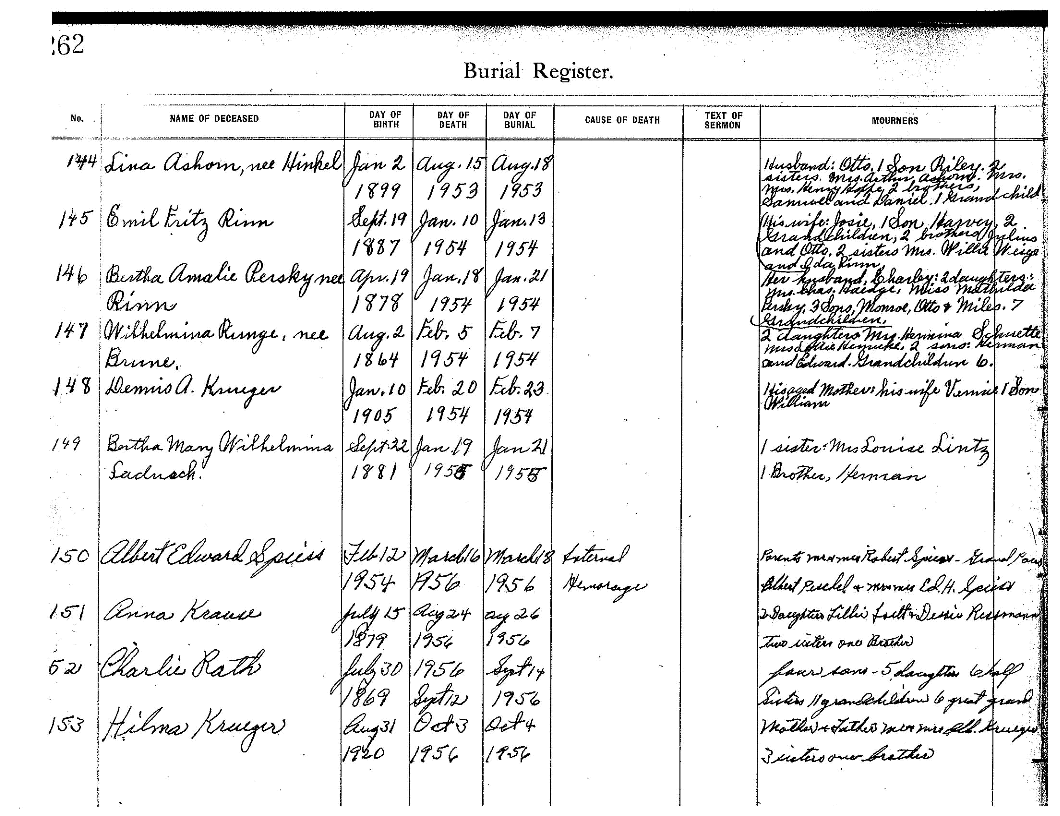 262
Burial Register.
No. NAME OF DECEASED DAY OF BIRTH DAY OF DEATH DAY OF BURIAL CAUSE OF DEATH TEXT OF SERMON MOURNERS
144 Lina Ashorn, nee Hinkel Jan 2 Aug. 15 Aug. 18 Husband: Otto, 1 Son Riley. 2
sisters. Mrs. Arthur Ashorn. Mrs.
1899 1953 1953 Mrs. Henry 2 brothers,
Samuel and Daniel. 1 Grandchild
145 Emil Fritz Rinn Sept. 19 Jan. 10 Jan. 13 His wife: Josie, 1 Son, Harvey, 2
Grandchildren, 2 brothers Julius
1887 1954 1954 and Otto, 2 sisters Mrs. Willie
and Ida Rinn.
146 Bertha Amalie Persky nee Apr. 19 Jan. 18 Jan. 21 Her husband, Charley: 2 daughters:
Mrs. Chas. Miss Mathilda
Rinn 1878 1954 1954 Persky, 3 Sons, Monroe, Otto & Miles. 7
Grandchildren.
147 Wilhelmina Runge, nee Aug. 2 Feb. 5 Feb. 7 2 daughters Mrs. Hermina Schuette
Mrs. 2 sons: Herman
Brune. 1864 1954 1954 and Edward. Grandchildren 6.
148 Dennis A. Krueger Jan. 10 Feb. 20 Feb. 23 His aged Mother: his wife 1 Son
William
1905 1954 1954
149 Bertha Mary Wilhelmina Sept 22 Jan 19 Jan 21 1 sister: Mrs Louise Lintz
Ladusch. 1881 1955 1955 1 Brother, Herman
150 Albert Edward Spiess Feb 12 March 16 March 18 External Parents Mr & Mrs Robert Spiess - Grand
1954 1956 1956 Hemorage Albert & Mr & Mrs Ed. H. Spiess
151 Anna Krause July 15 Aug 24 Aug 26 2 Daughters Lillie & Dessie
1879 1956 1956 two sisters one Brother
52 Charlie Rath July 30 1956 Sept 14 four sons - 5 daughters 6 half
1869 Sept 12 1956 Sisters 11 grandchildren 6 great grand
153 Hilma Krueger Aug 31 Oct 3 Oct 4 Mother & Father Mr & Mrs Alb. Krueger
1920 1956 1956 3 sisters one brother